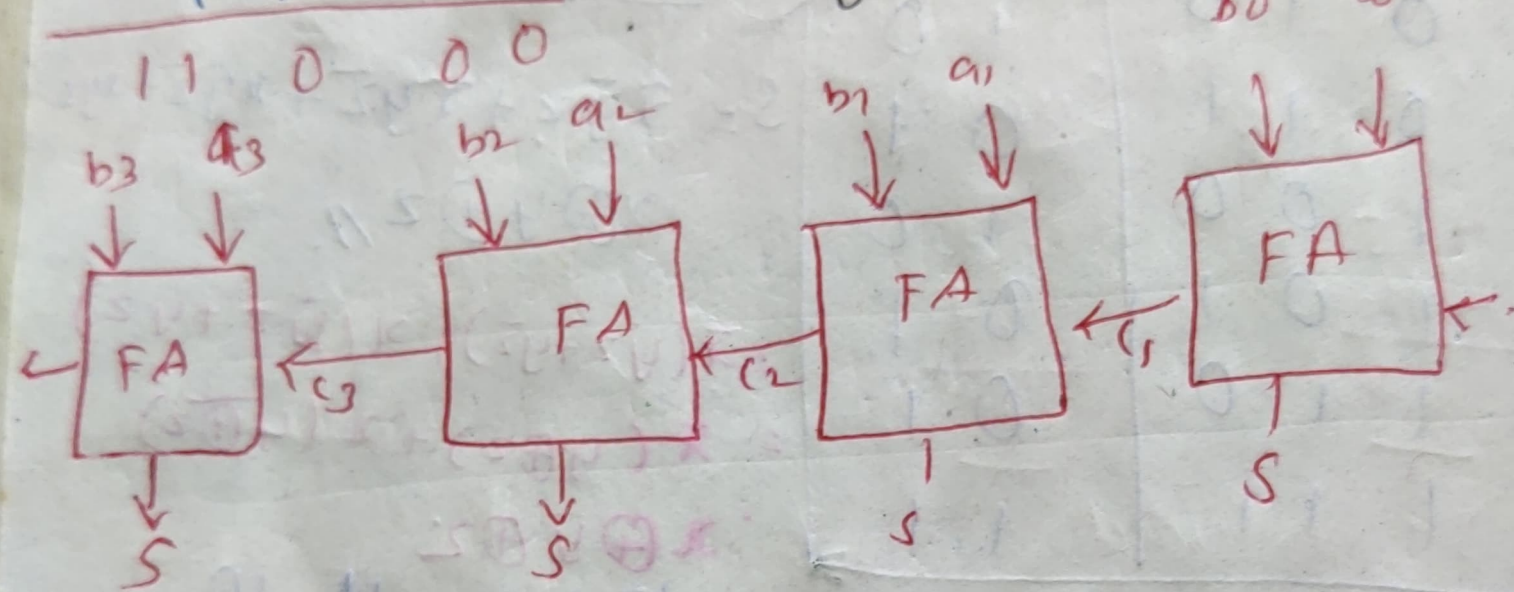 1 1 0 0 0
b3 a3 b2 a2 b1 a1 b0
FA FA FA FA
c3 c2 c1
S S S S